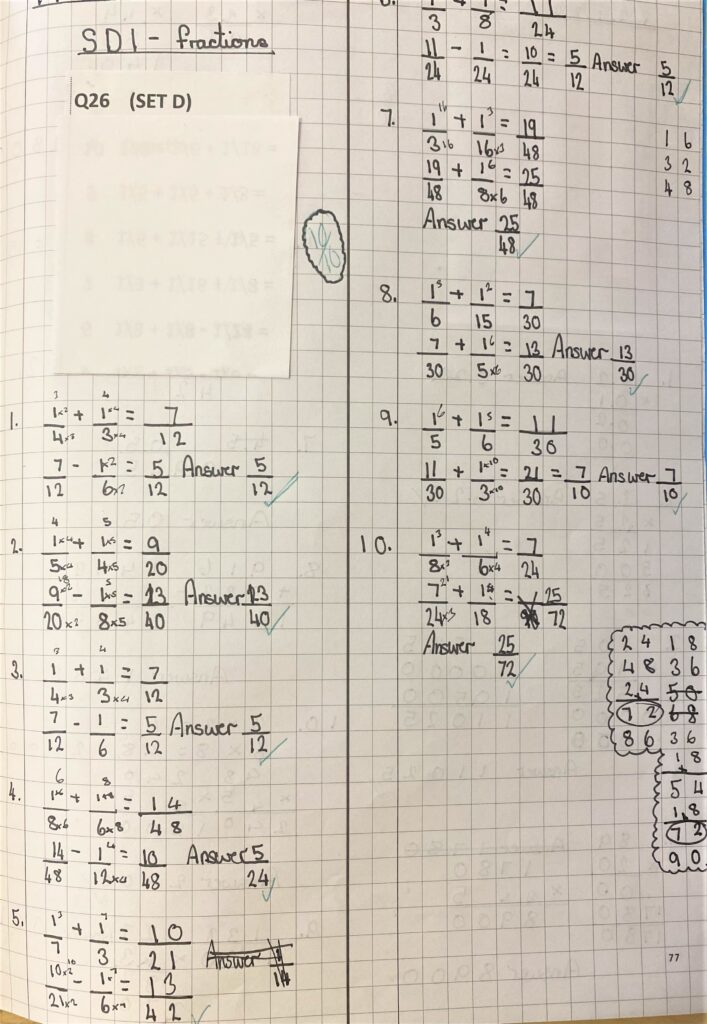 SDI - fractions
Q26 (SET D)
10/10
1. 1×2/4×3 + 1×4/3×4 = 7/12
7/12 - 1×2/6×2 = 5/12 Answer 5/12
2. 1×4/5×4 + 1×5/4×5 = 9/20
9×2/20×2 - 1×5/8×5 = 13/40 Answer 13/40
3. 1/4×3 + 1/3×4 = 7/12
7/12 - 1/6 = 5/12 Answer 5/12
4. 1×6/8×6 + 1×8/6×8 = 14/48
14/48 - 1 4/12×4 = 10/48 Answer 5/24
5. 1 3/7 + 1 7/3 = 10/21 Answer
10×2/21×2 - 1×7/6×7 = 13/42
1/3 + 1/8 = 11/24
11/24 - 1/24 = 10/24 = 5/12 Answer 5/12
7. 1 16/3 16 + 1 3/16×3 = 19/48
19/48 + 1 6/8×6 = 25/48
Answer 25/48
16
32
48
8. 1 5/6 + 1 2/15 = 7/30
7/30 + 1 6/5×6 = 13/30 Answer 13/30
9. 1 6/5 + 1 5/6 = 11/30
11/30 + 1×10/3×10 = 21/30 = 7/10 Answer 7/10
10. 1 3/8×3 + 1 4/6×4 = 7/24
7 21/24×3 + 1 4/18 = 25/72
Answer 25/72
24 18
48 36
24
72 68
86 36
18
54
18
72
90
77